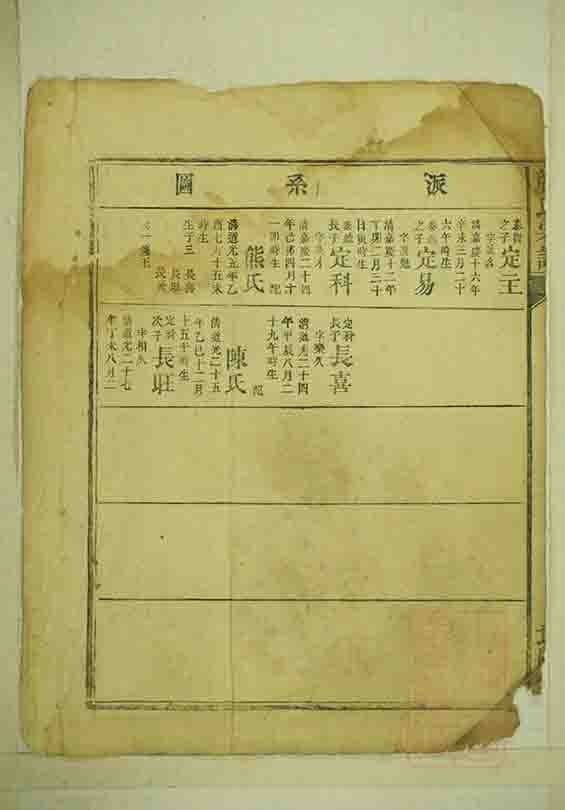 派系圖
之子
定主
清嘉慶十六年
辛未三月二十
六午時生
之子
定易
清嘉慶十二年
丁卯二月三十
日寅時生
長子
定科
清嘉慶二十四
年己卯四月十
一卯時生 配
熊氏
清道光五年乙
酉七月十五未
時生
生子三 長喜
長旺
定科
長子
長喜
字樂久
清道光二十四
年甲辰八月二
十九午時生
配
陳氏
清道光二十五
年乙巳十二月
十五午時生
定科
次子
長旺
字相久
清道光二十七
年丁未八月二